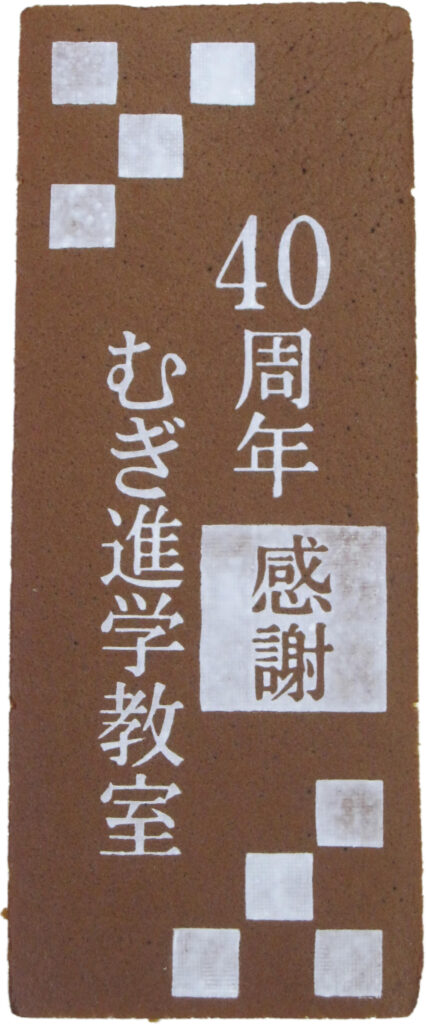 40周年
感謝
むぎ進学教室